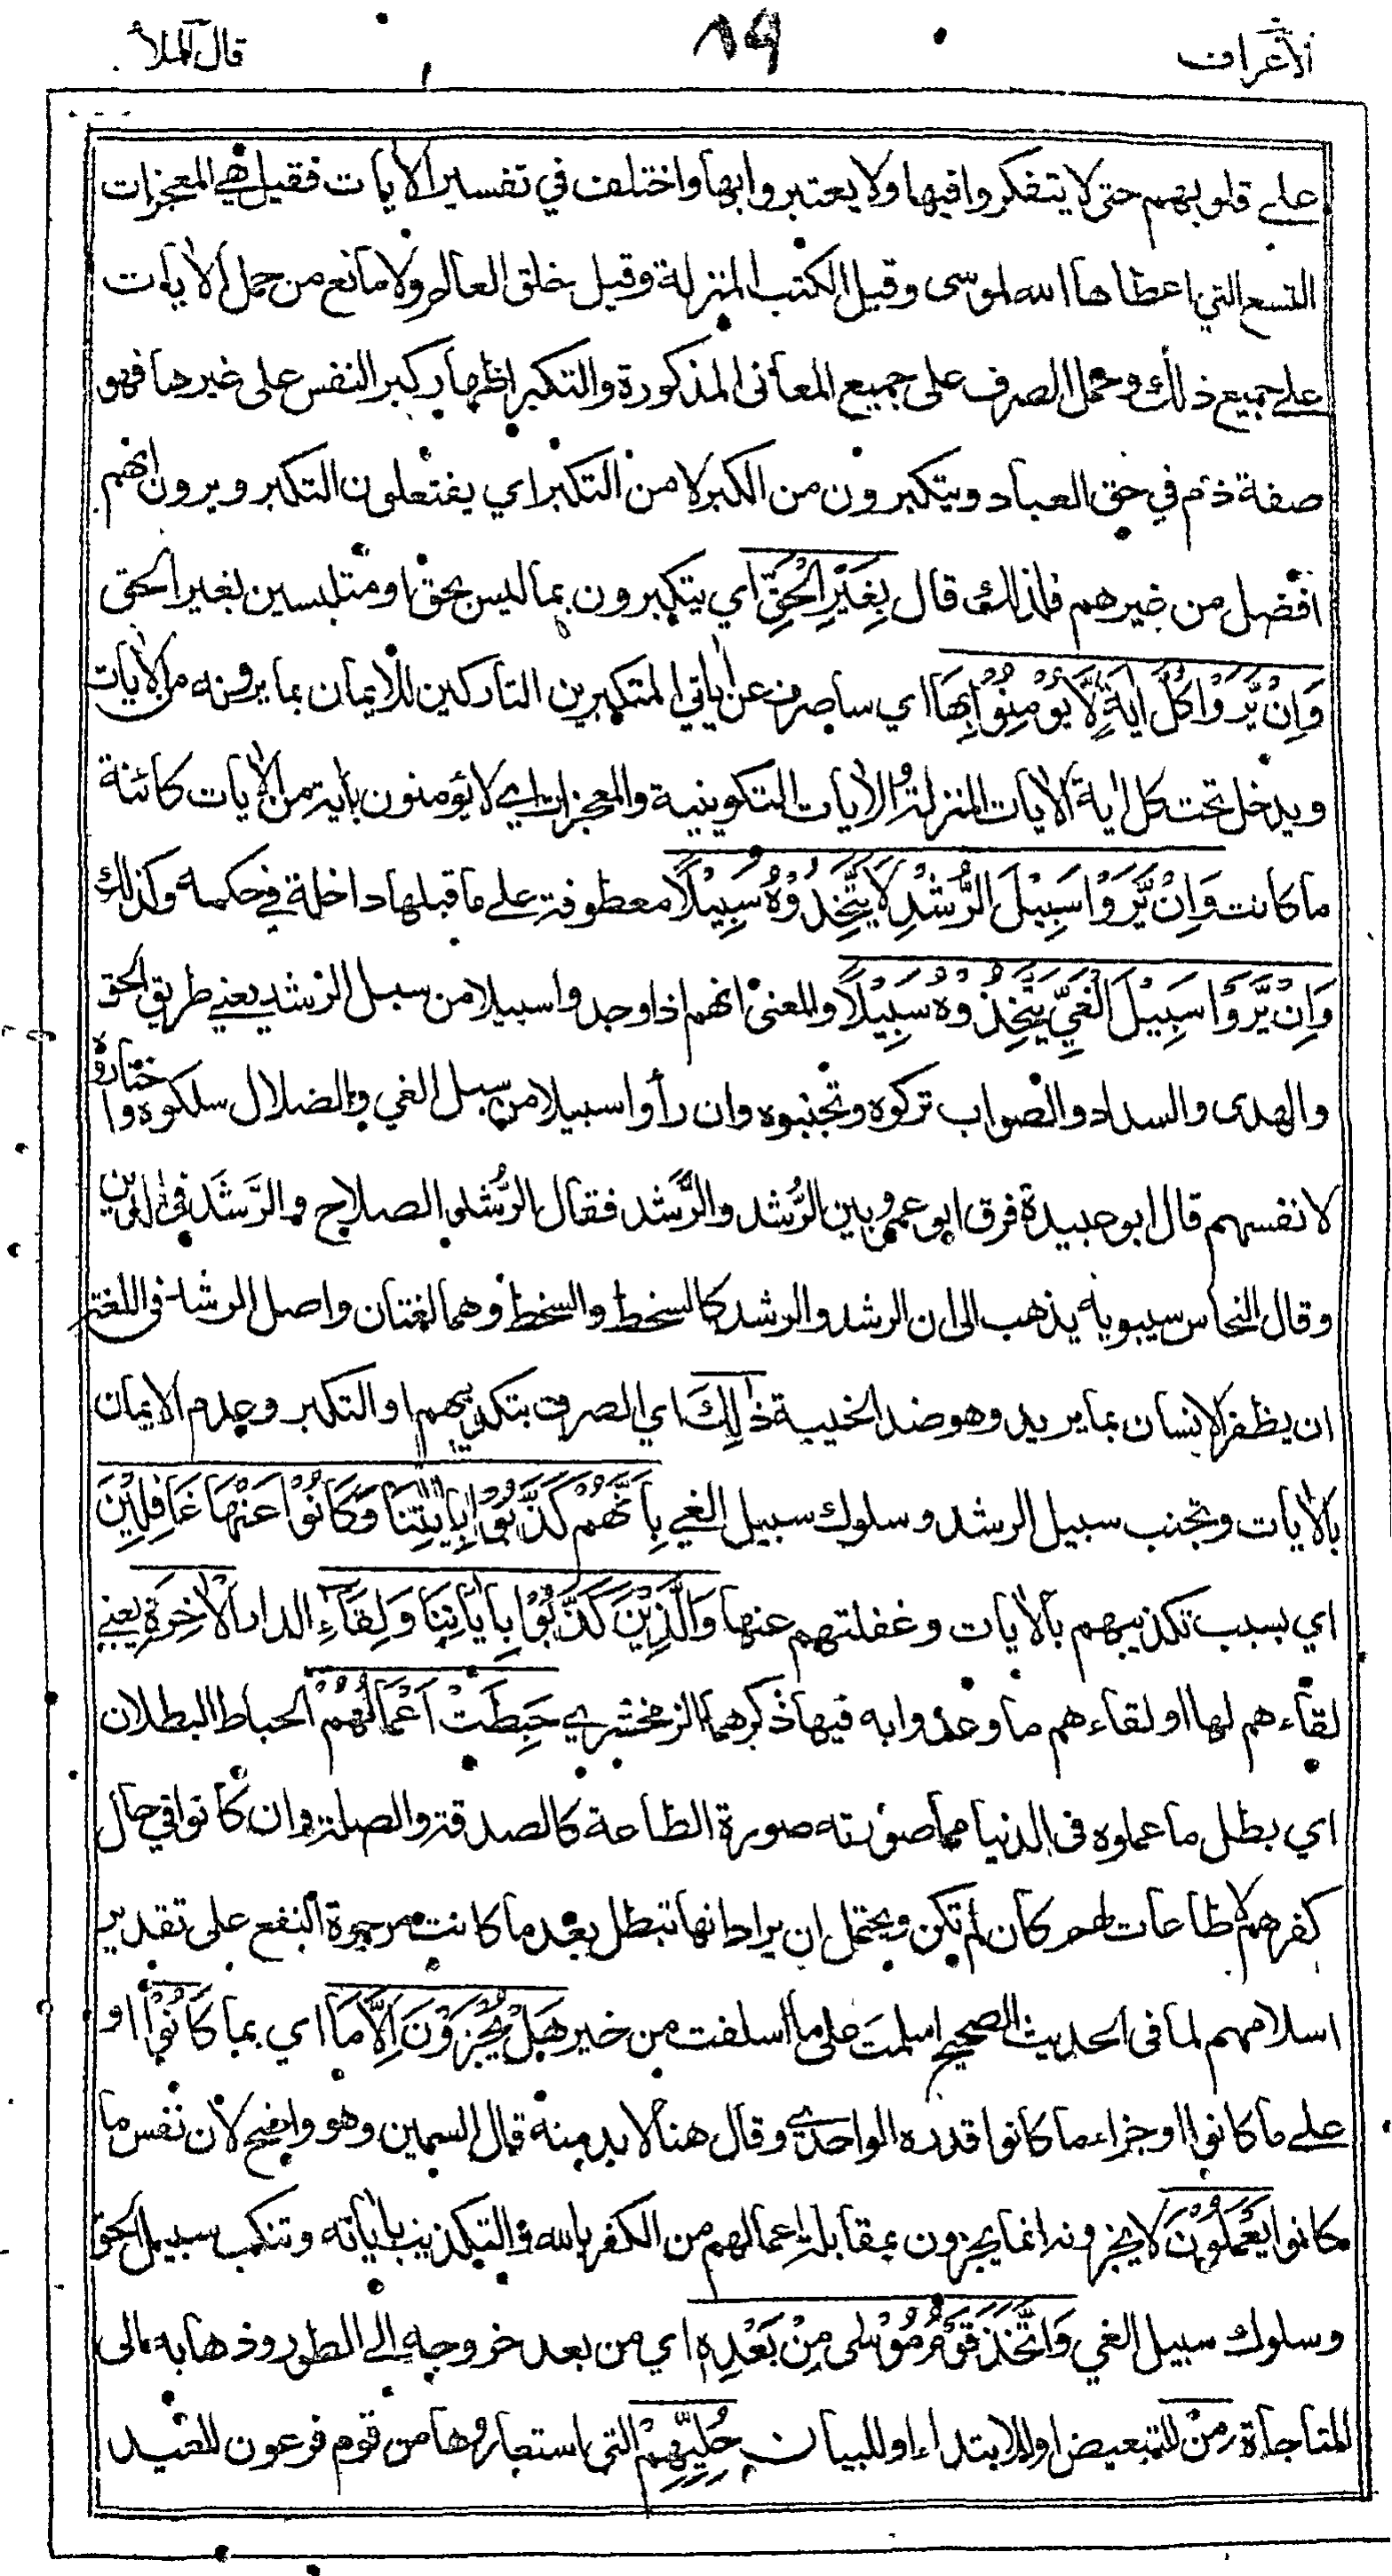 الأعراف ١٩ قال الملأ
على قلوبهم حتى لا يتفكروا فيها ولا يعتبروا بها واختلف في تفسير الأيات فقيل هي المعجزات
التسع التي اعطاها الله لموسى وقيل الكتب المنزلة وقيل خلق العالم ولا مانع من حمل الأيات
على جميع ذلك وحمل الصرف على جميع المعاني المذكورة والتكبر اظهار كبر النفس على غيرها فهو
صفة ذم في حق العباد ويتكبرون من الكبر لا من التكبر اي يفتعلون التكبر ويرون انهم
افضل من غيرهم فلذلك قال بِغَيْرِ الْحَقِّ اي يتكبرون بما ليس بحق او متلبسين بغير الحق
وَإِنْ يَّرَوْا كُلَّ اٰيَةٍ لَّا يُؤْمِنُوْا بِهَا اي ساصرف عن اٰياتي المتكبرين التاركين للايمان بما يرونه من الأيات
ويدخل تحت كل اٰية الأيات المنزلة والأيات التكوينية والمعجزات اي لا يؤمنون بأية من الأيات كائنة
ما كانت وَإِنْ يَّرَوْا سَبِيْلَ الرُّشْدِ لَا يَتَّخِذُوْهُ سَبِيْلًا معطوفة على ما قبلها داخلة في حكمه وكذلك
وَإِنْ يَّرَوْا سَبِيْلَ الْغَيِّ يَتَّخِذُوْهُ سَبِيْلًا والمعنى انهم اذا وجدوا سبيلا من سبل الرشد يعني طريق الحق
والهدى والسداد والصواب تركوه وتجنبوه وان رأوا سبيلا من سبل الغي والضلال سلكوه واختاروه
لانفسهم قال ابو عبيدة فرق ابو عمرو بين الرُّشد والرَّشد فقال الرُّشد الصلاح والرَّشَد في الدين
وقال النحاس سيبويه يذهب الى ان الرشد والرشد كالسخط والسخط وهما لغتان واصل الرشد في اللغة
ان يظفر الانسان بما يريد وهو ضد الخيبة ذٰلِكَ اي الصرف بتكذيبهم او التكبر وعدم الايمان
بالأيات وتجنب سبيل الرشد وسلوك سبيل الغي بِأَنَّهُمْ كَذَّبُوْا بِاٰيٰتِنَا وَكَانُوْا عَنْهَا غَافِلِيْنَ
اي بسبب تكذيبهم بالأيات وغفلتهم عنها وَالَّذِيْنَ كَذَّبُوْا بِاٰيَاتِنَا وَلِقَاءِ الدار الْاٰخِرَةِ يعني
لقاءهم لها او لقاءهم ما وعدوا به فيها ذكرهما الزمخشري حَبِطَتْ اَعْمَالُهُمْ الحباط البطلان
اي بطل ما عملوه في الدنيا مما صورته صورة الطاعة كالصدقة والصلة وان كانوا في حال
كفرهم لا طاعات لهم كأن لم تكن ويحتمل ان يراد انها تبطل بعد ما كانت مرجوة النفع على تقدير
اسلامهم لما في الحديث الصحيح اسلمت على ما اسلفت من خير هَلْ يُجْزَوْنَ اِلَّا مَا اي بما كَانُوْا او
على ما كانوا او جزاء ما كانوا قدره الواحدي وقال هنا لا بد منه قال السمين وهو واضح لان نفس ما
كانوا يَعْمَلُوْنَ لا يجزونه انما يجزون بمقابلة اعمالهم من الكفر بالله والتكذيب بأياته وتنكب سبيل الحق
وسلوك سبيل الغي وَاتَّخَذَ قَوْمُ مُوْسٰى مِنْ بَعْدِهٖ اي من بعد خروجه الى الطور وذهابه الى
المناجاة مِنْ للتبعيض او للابتداء او للبيان حُلِيِّهِمْ التي استعاروها من قوم فرعون للعيد